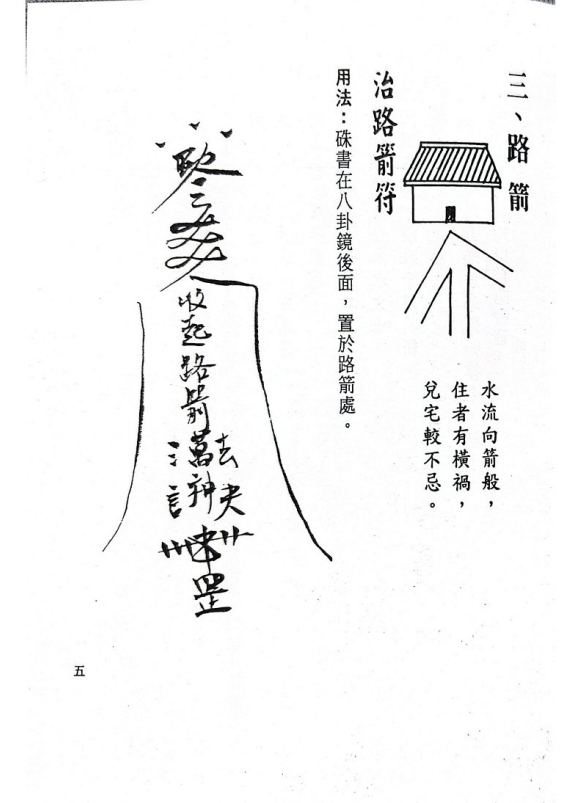 三、路箭
水流向箭般，
住者有橫禍，
兌宅較不忌。
治路箭符
用法：硃書在八卦鏡後面，置於路箭處。
收起路箭萬神
罡
五